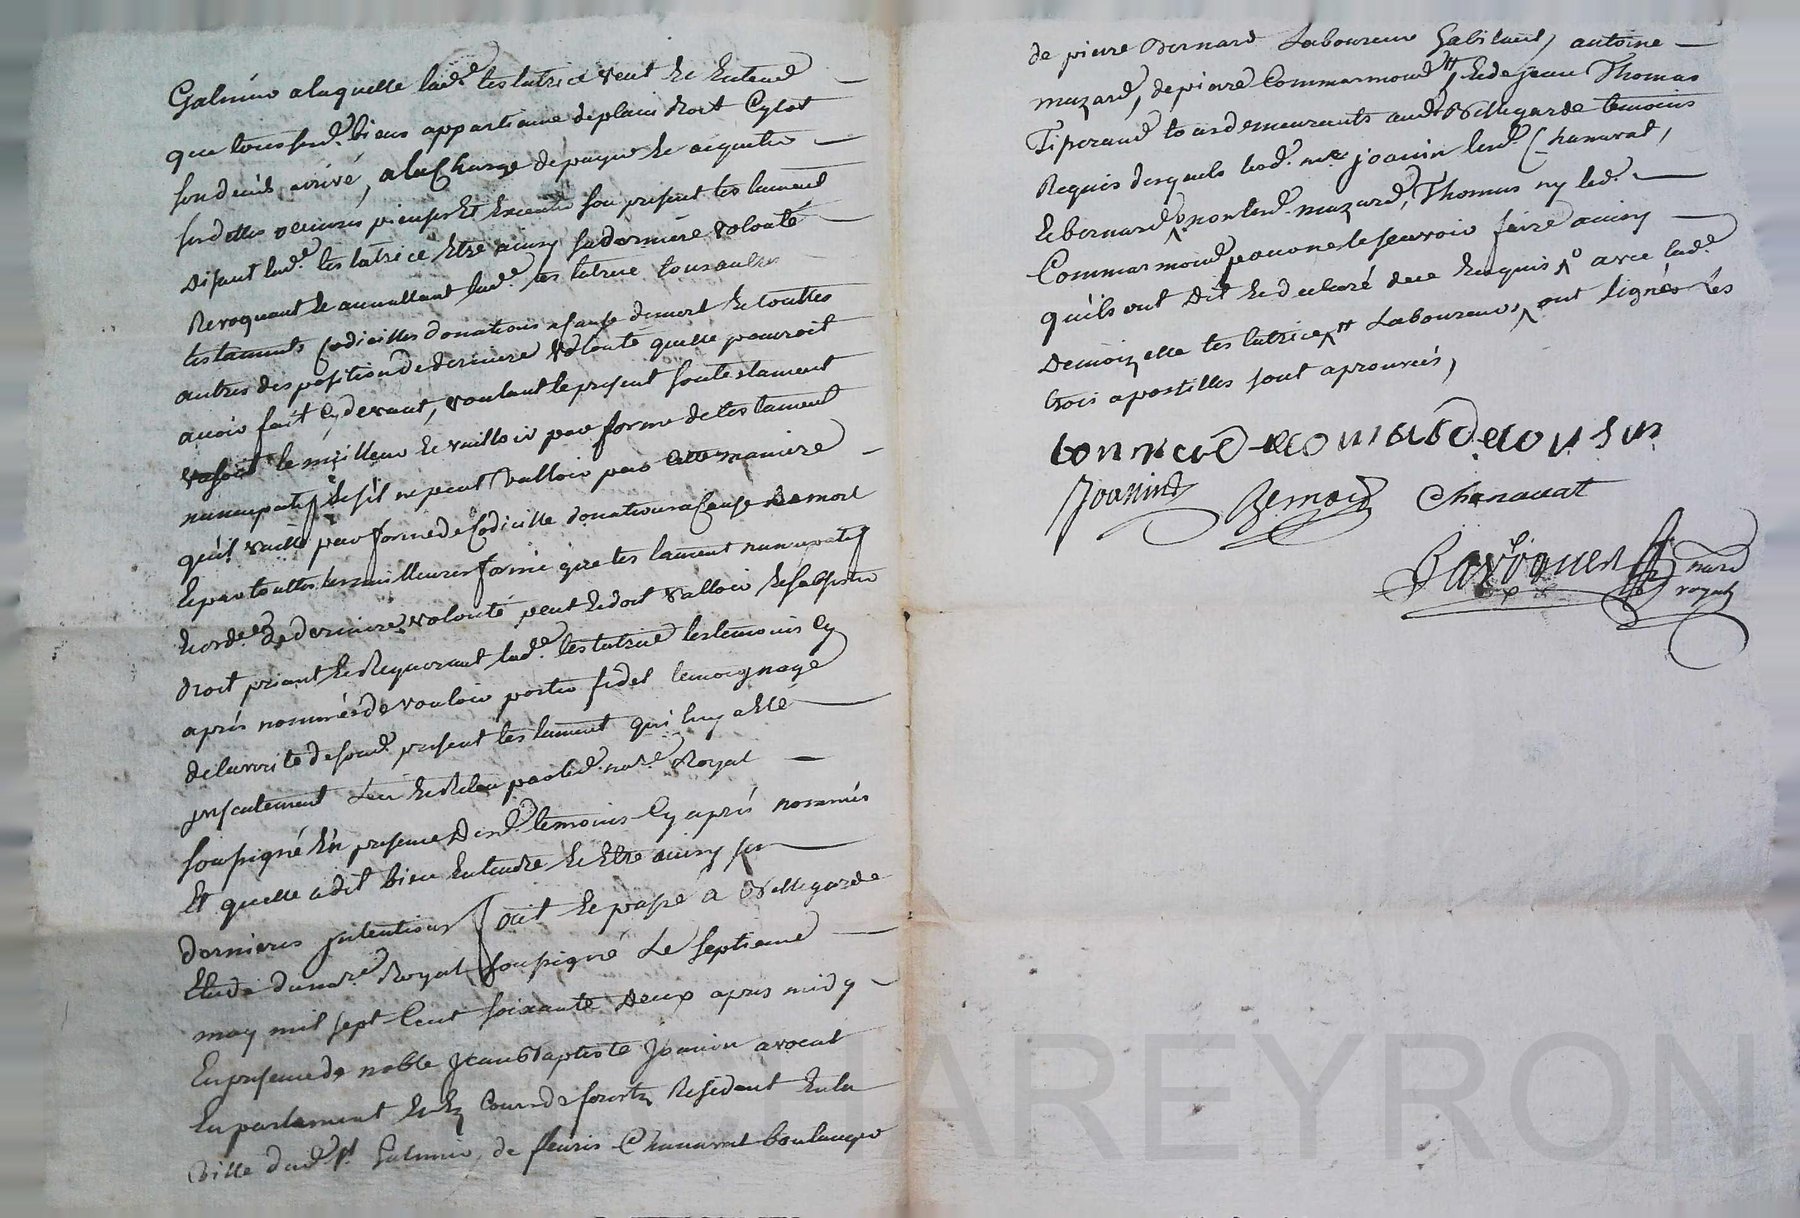 Galmier a laquelle lad.e testatrice veut et entend
que tous sesd. biens appartienne de plain droit sytot
son decès arrivé, a la charge de payer et acquitter
sesdettes oeuvres pieuses et executer son present testament
disant lad.e testatrice etre ainsy sa derniere volonté
Revoquant et annullant lad.e testatrice tous autres
testaments codicilles donations a cause de mort et touttes
autres disposition de derniere volonté quelle pourroit
avoir fait cy devant, voulant le present son testament
le meilleur et valloir par forme de testament
nuncupatif et s'il ne peut valloir par cette maniere
quil vaille par forme de codicille donation a cause de mort
et par touttes les meilleures forme que testament nuncupatif
et ord.ce de derniere volonté peut et doit valloir et subsister
droit priant et Requerant lad.e testatrice les temoins cy
après nommés de vouloir porter fidel temoignage
de la verité de sond. present testament qui luy a eté
presentement Leu et Releu par led. no.re Royal
soussigné en presence desd. temoins cy après nommés
Et quelle a dit bien entendre et etre ainsy ses
dernieres intentions fait et passé a Bellegarde
Etude du no.re Royal soussigné Le septieme
may mil sept cent soixante deux apres midy
En presence de noble Jean Baptiste Joanin avocat
En parlement et ez cours de forests Resident en la
Ville dud. st Galmier, de fleuris Chanavat boulanger
de pierre Bernard Laboureur habitant, antoine
mazard, de pierre Commarmond # et de jean Thomas
Tisserand tous demeurants aud. Bellegarde temoins
Requis desquels led. me joanin led. Chanavat,
et bernard non led. mazard, Thomas ny led.
Commarmond pour ne le sçavoir faire ainsy
quils ont dit et declaré de ce Enquis avec lad.e
Demoizelle testatrice # Laboureur, ont signés Les
trois apostilles sont aprouvées,
Joanin Bernard Chanavat
no.re
royal
CHAREYRON